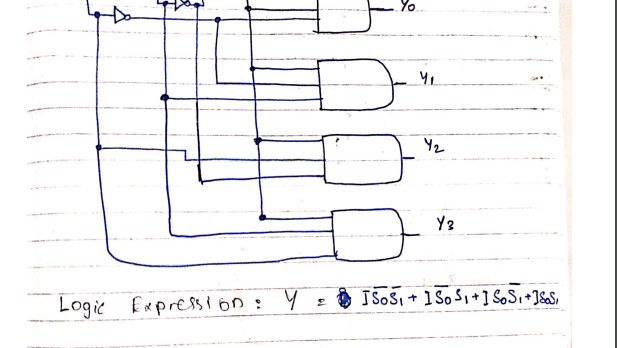 Y0
Y1
Y2
Y3
Logic Expression : Y = I S̅0 S̅1 + I S̅0 S1 + I S0 S̅1 + I S0 S1